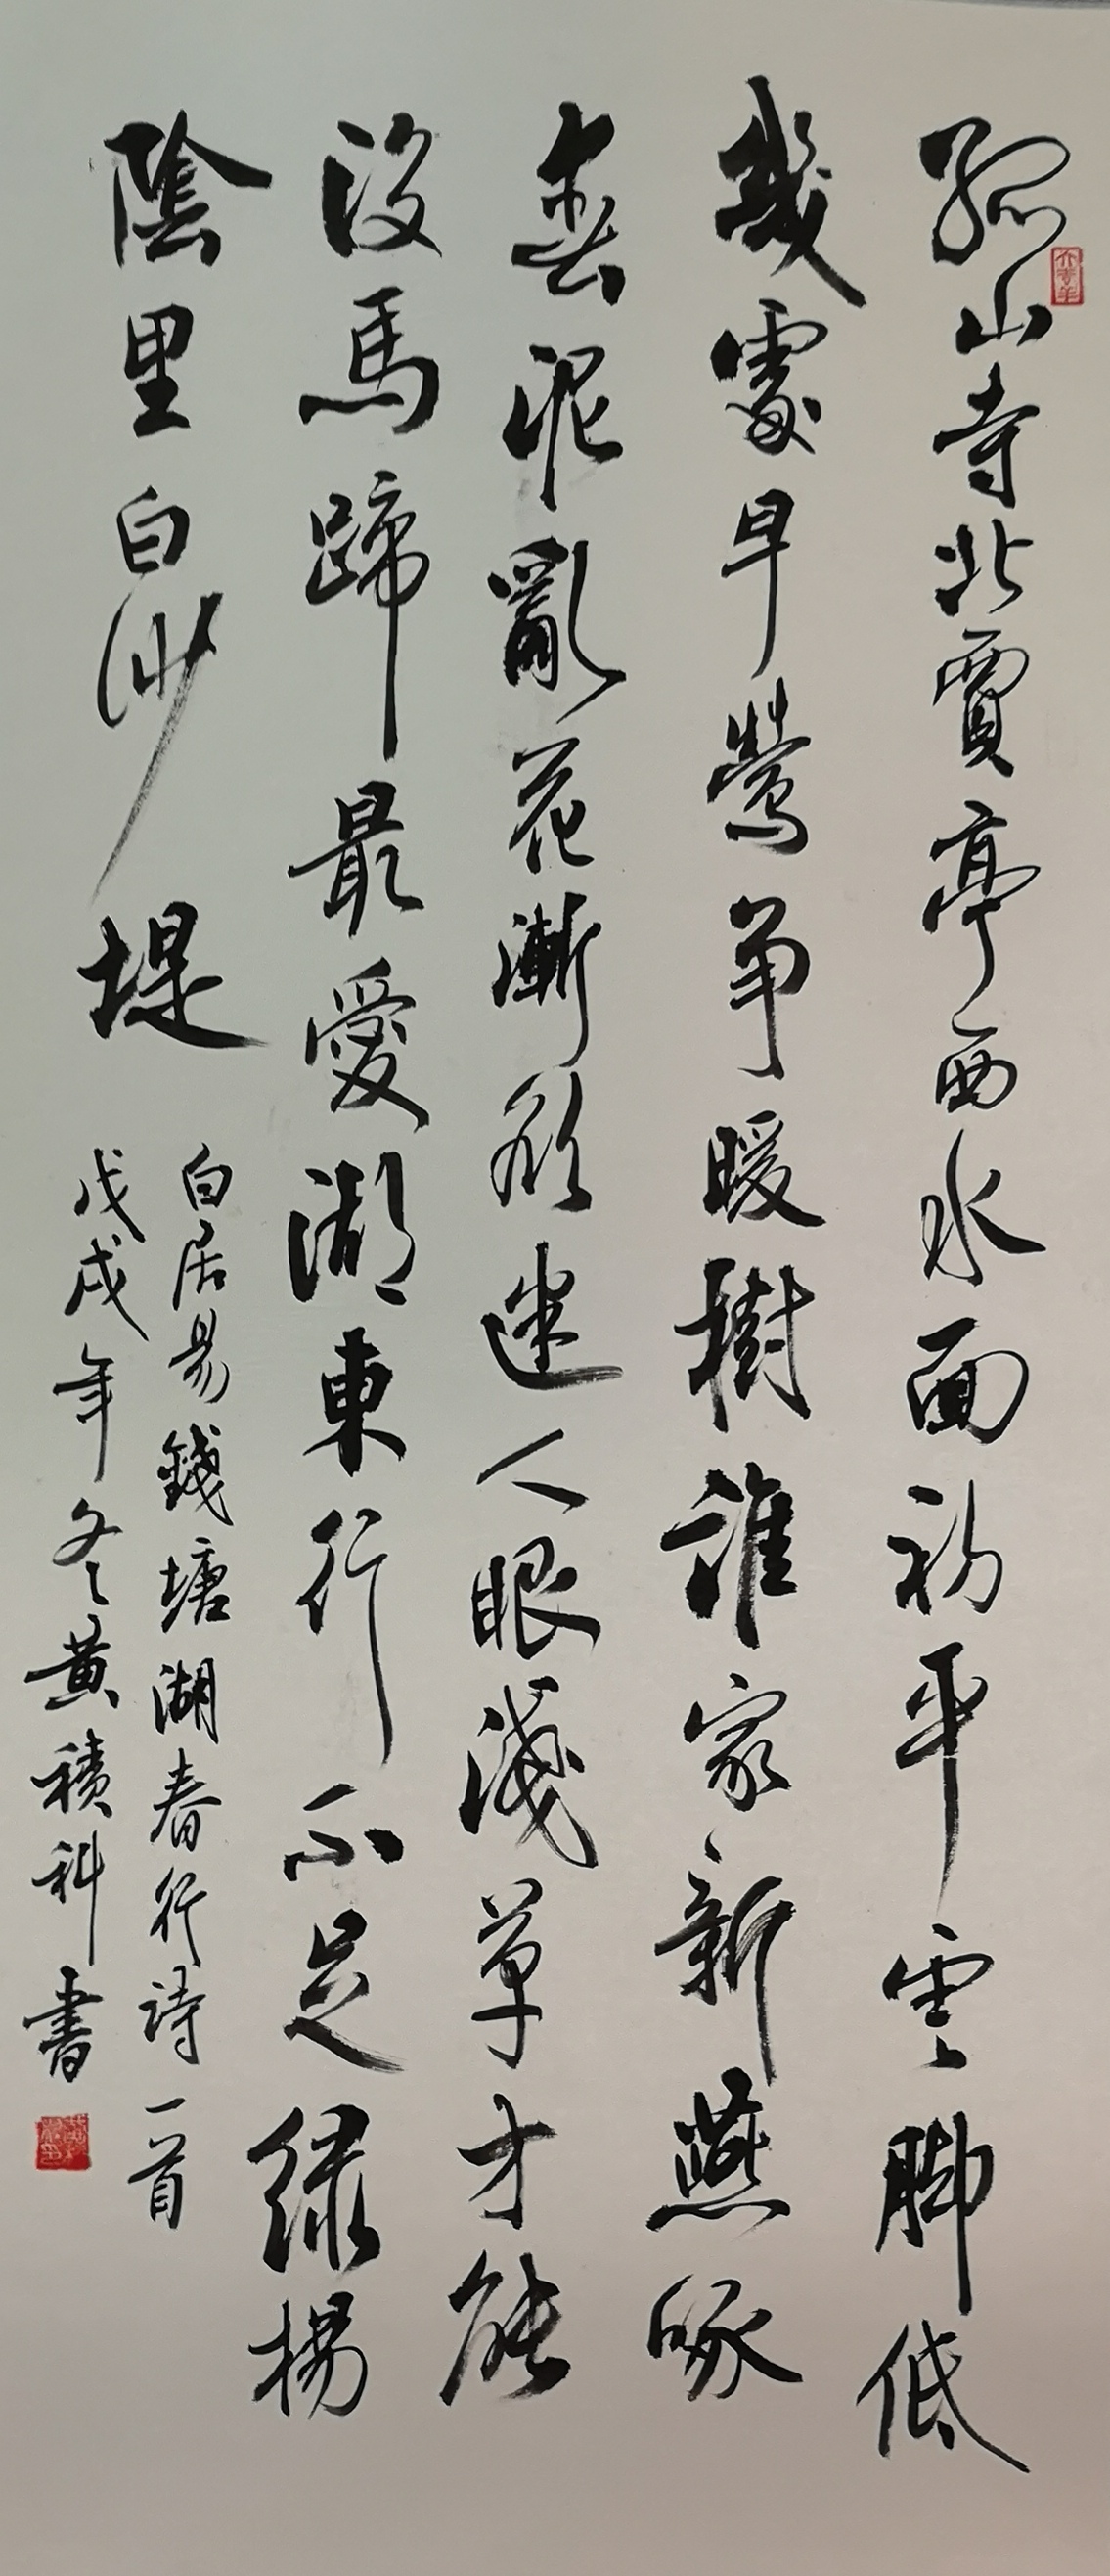 孤山寺北賈亭西水面初平雲脚低
幾處早鶯争暖樹誰家新燕啄
春泥亂花漸欲迷人眼淺草才能
没馬蹄最愛湖東行不足緑楊
陰里白沙堤
白居易錢塘湖春行詩一首
戊戌年冬黄積科書